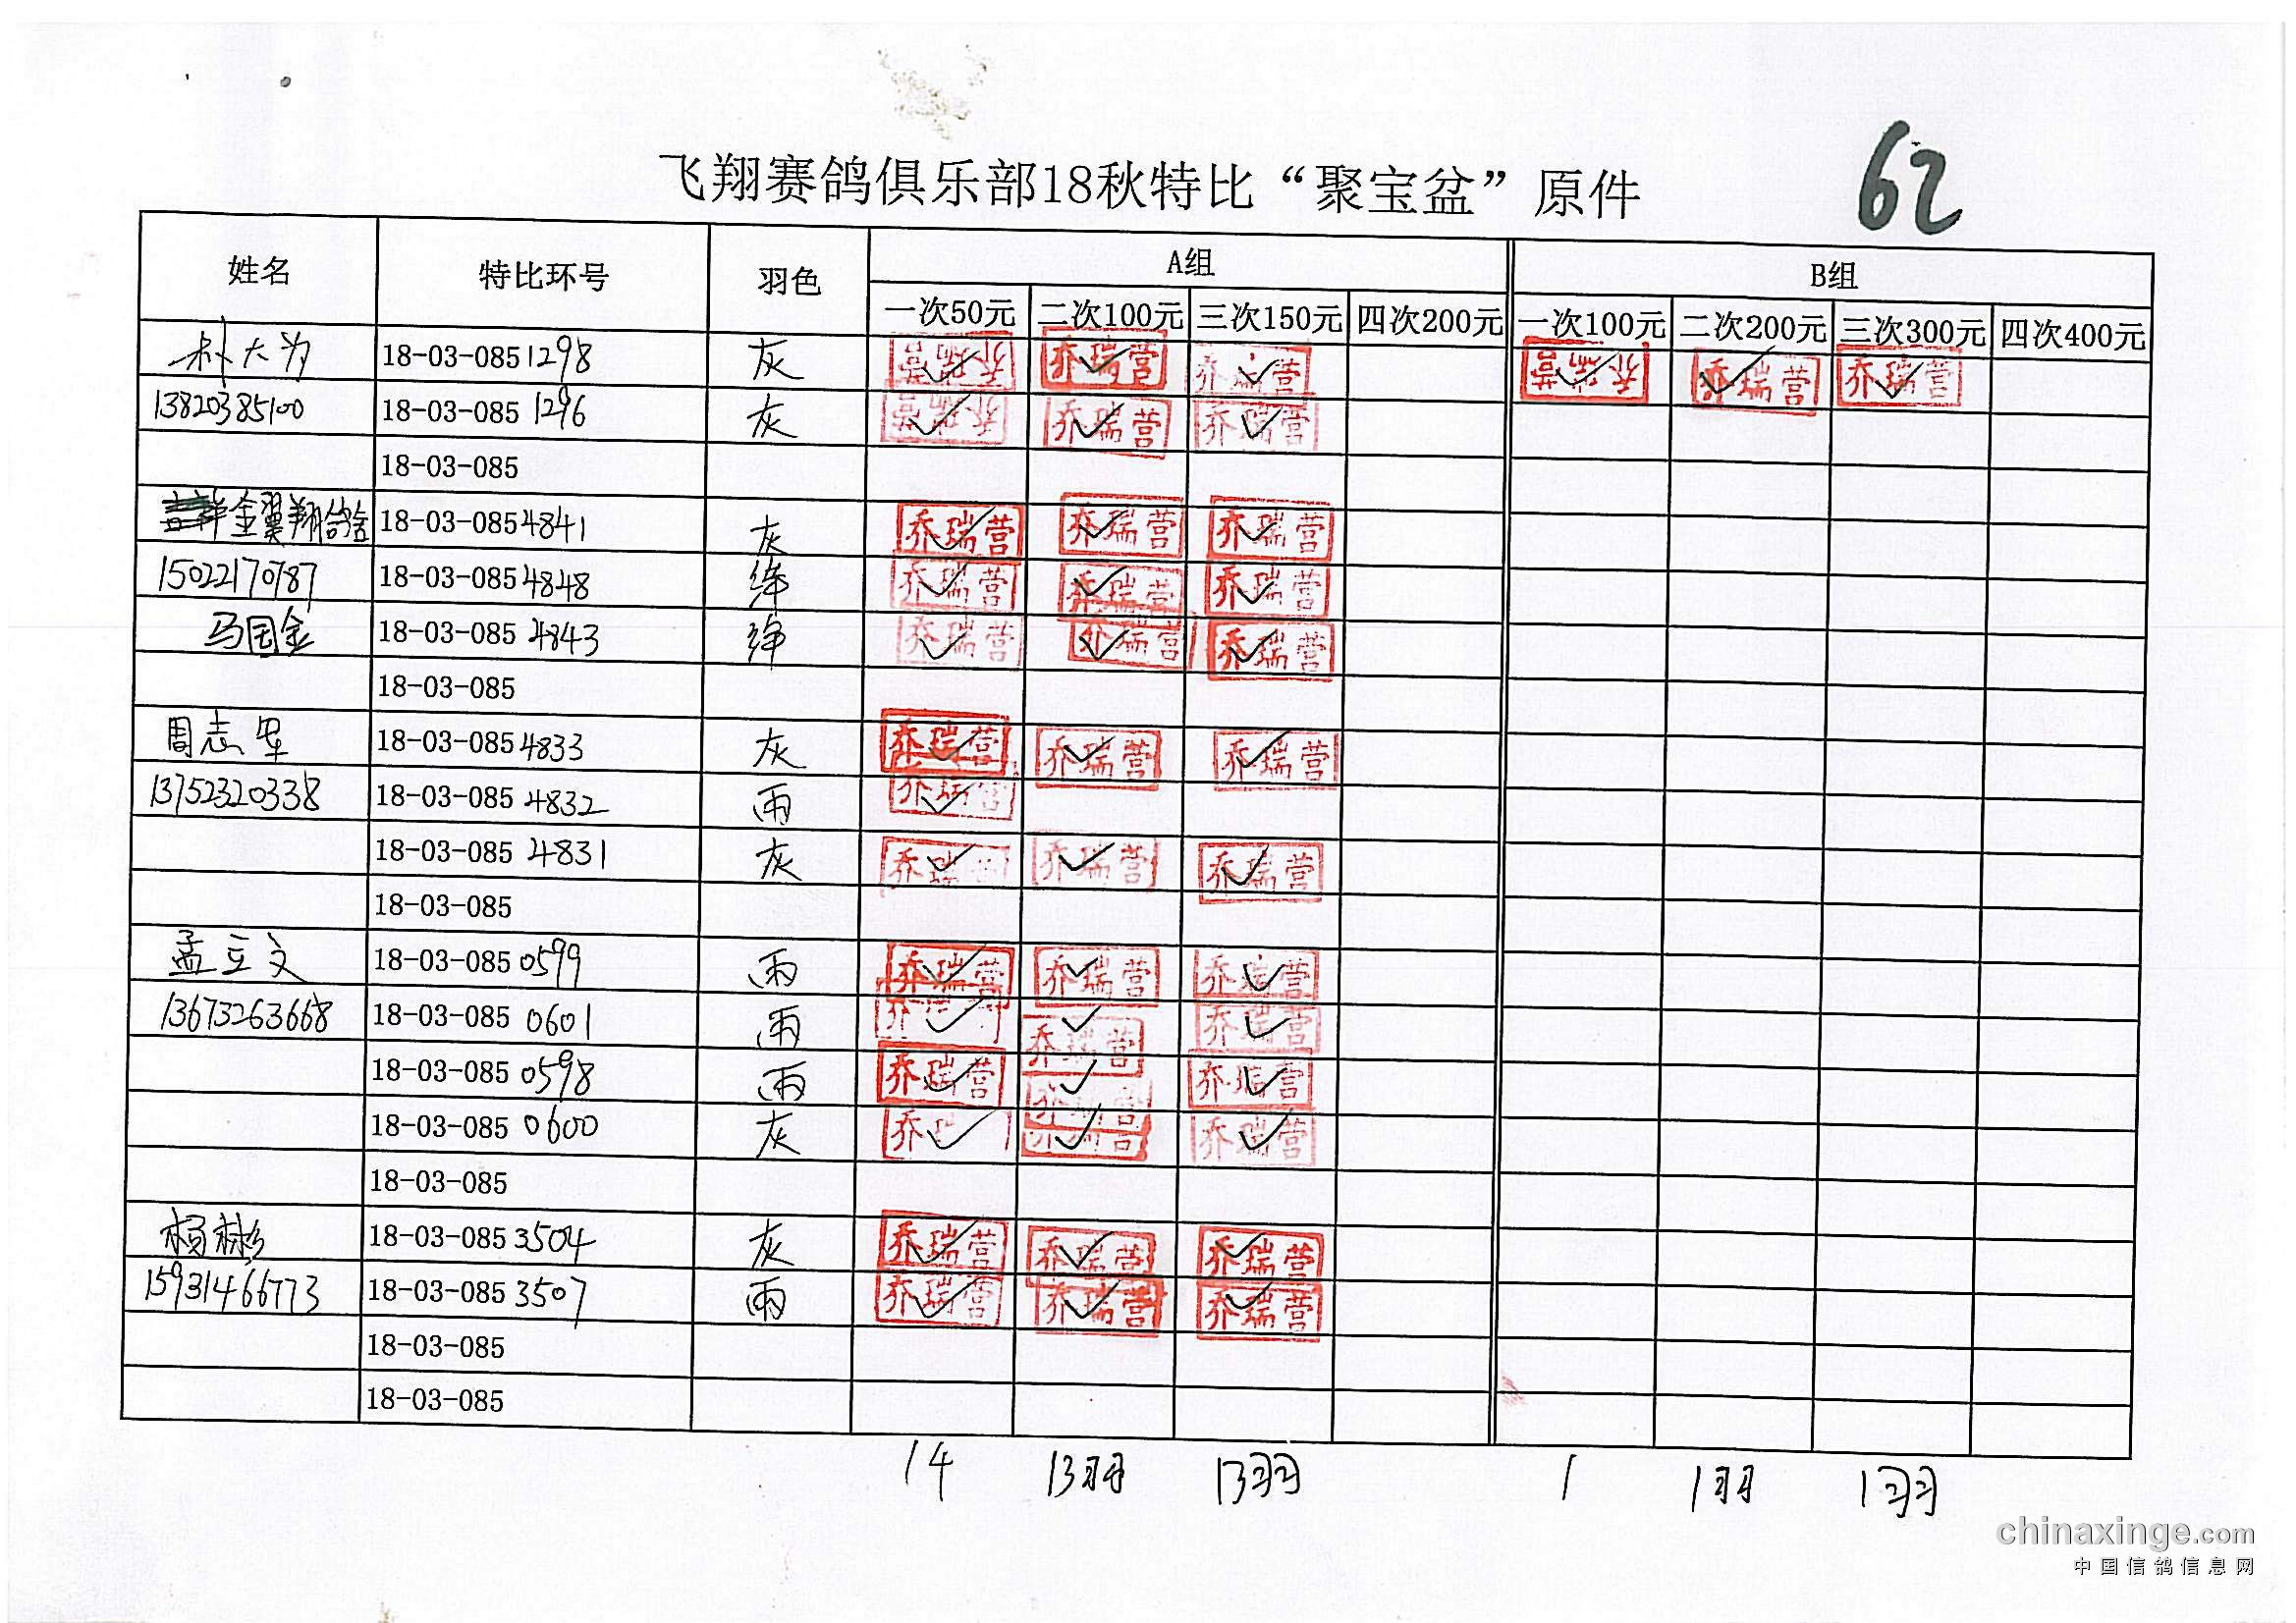 飞翔赛鸽俱乐部18秋特比“聚宝盆”原件
62
姓名 特比环号 羽色 A组 B组
一次50元 二次100元 三次150元 四次200元 一次100元 二次200元 三次300元 四次400元
朴大为 18-03-0851298 灰 乔瑞营 乔瑞营 乔瑞营 乔瑞营 乔瑞营 乔瑞营
13820385100 18-03-085 1296 灰 乔瑞营 乔瑞营 乔瑞营
18-03-085
金翼翔鸽舍 18-03-0854841 灰 乔瑞营 乔瑞营 乔瑞营
15022170787 18-03-0854848 绛 乔瑞营 乔瑞营 乔瑞营
马国金 18-03-085 4843 绛 乔瑞营 乔瑞营 乔瑞营
18-03-085
周志军 18-03-0854833 灰 乔瑞营 乔瑞营 乔瑞营
13752320338 18-03-085 4832 雨 乔瑞营
18-03-085 4831 灰 乔瑞营 乔瑞营 乔瑞营
18-03-085
孟立文 18-03-085 0599 雨 乔瑞营 乔瑞营 乔瑞营
13673263668 18-03-085 0601 雨 乔 乔瑞营 乔瑞营
18-03-085 0598 雨 乔瑞营 乔瑞营 乔瑞营
18-03-085 0600 灰 乔瑞 乔瑞营 乔瑞营
18-03-085
杨彬 18-03-085 3504 灰 乔瑞营 乔瑞营 乔瑞营
15931466773 18-03-085 3507 雨 乔瑞营 乔瑞营 乔瑞营
18-03-085
18-03-085
14 13羽 13羽 1 1羽 1羽
chinaxinge.com
中国信鸽信息网